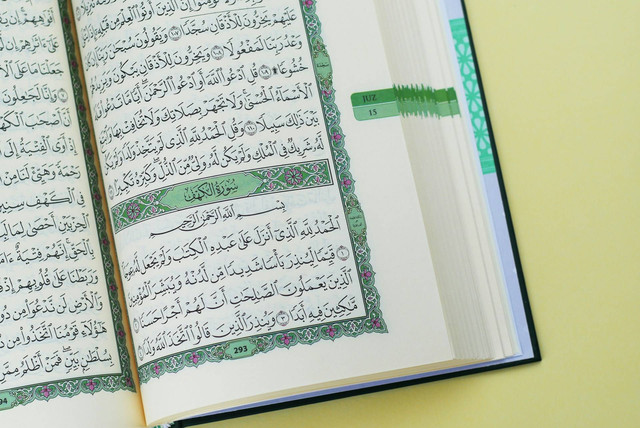 تُؤْمِنُوا إِنَّ الَّذِينَ أُوتُوا الْعِلْمَ مِن قَبْلِهِ إِذَا
عَلَيْهِمْ يَخِرُّونَ لِلْأَذْقَانِ سُجَّدًا ١٠٧ وَيَقُولُونَ سُبْحَٰنَ رَبِّنَا إِن
وَعْدُ رَبِّنَا لَمَفْعُولًا ١٠٨ وَيَخِرُّونَ لِلْأَذْقَانِ يَبْكُونَ وَيَزِيدُهُمْ
خُشُوعًا ۩ ١٠٩ قُلِ ادْعُوا اللَّهَ أَوِ ادْعُوا الرَّحْمَٰنَ أَيًّا مَّا تَدْعُوا
الْأَسْمَاءُ الْحُسْنَىٰ وَلَا تَجْهَرْ بِصَلَاتِكَ وَلَا تُخَافِتْ بِهَا
بَيْنَ ذَٰلِكَ سَبِيلًا ١١٠ وَقُلِ الْحَمْدُ لِلَّهِ الَّذِي لَمْ يَتَّخِذْ وَلَدًا وَلَمْ يَكُن
لَّهُ شَرِيكٌ فِي الْمُلْكِ وَلَمْ يَكُن لَّهُ وَلِيٌّ مِّنَ الذُّلِّ وَكَبِّرْهُ تَكْبِيرًا ١١١
سُورَةُ الْكَهْفِ
بِسْمِ اللَّهِ الرَّحْمَٰنِ الرَّحِيمِ
الْحَمْدُ لِلَّهِ الَّذِي أَنزَلَ عَلَىٰ عَبْدِهِ الْكِتَٰبَ وَلَمْ يَجْعَل لَّهُ عِوَجَا
١ قَيِّمًا لِّيُنذِرَ بَأْسًا شَدِيدًا مِّن لَّدُنْهُ وَيُبَشِّرَ الْمُؤْمِنِينَ
الَّذِينَ يَعْمَلُونَ الصَّٰلِحَٰتِ أَنَّ لَهُمْ أَجْرًا حَسَنًا ٢
مَّٰكِثِينَ فِيهِ أَبَدًا ٣ وَيُنذِرَ الَّذِينَ قَالُوا اتَّخَذَ اللَّهُ وَلَدًا ٤
293
JUZ
15
جَعَلْنَا مَا عَلَى
وَإِنَّا لَجَٰعِلُونَ
أَنَّ أَصْحَٰبَ الْكَهْفِ
إِذْ أَوَى الْفِتْيَةُ إِلَى
رَحْمَةً وَهَيِّئْ لَنَا مِنْ
فِي الْكَهْفِ سِنِينَ
الْحِزْبَيْنِ أَحْصَىٰ لِمَا
بِالْحَقِّ إِنَّهُمْ فِتْيَةٌ
وَرَبَطْنَا عَلَىٰ قُلُوبِهِمْ إِذْ
وَالْأَرْضِ لَن نَّدْعُوَا مِن
هَٰؤُلَاءِ قَوْمُنَا اتَّخَذُوا مِن
بِسُلْطَٰنٍ بَيِّنٍ فَمَنْ أَظْلَمُ
94